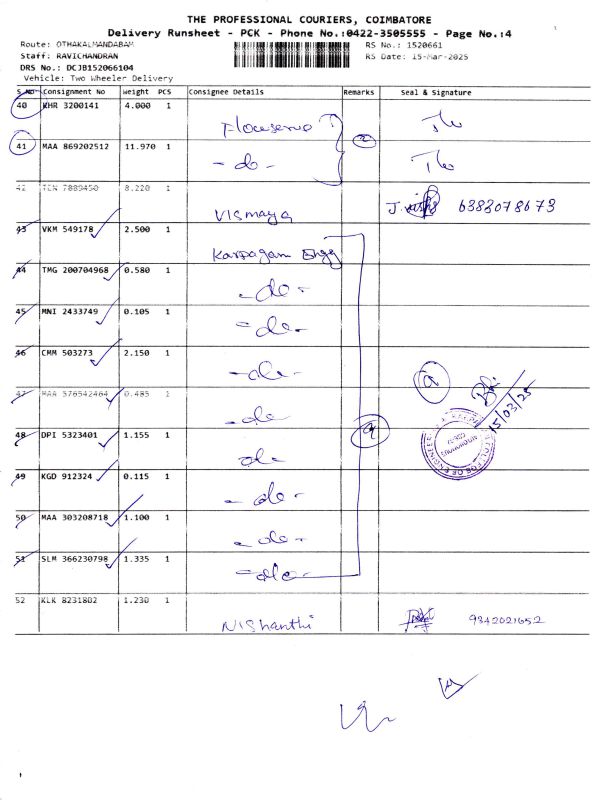 THE PROFESSIONAL COURIERS, COIMBATORE
Delivery Runsheet - PCK - Phone No.:0422-3505555 - Page No.:4
Route: OTHAKALMANDABAM
RS No.: 1520661
Staff: RAVICHANDRAN
RS Date: 15-Mar-2025
DRS No.: DCJB152066104
Vehicle: Two Wheeler Delivery
S.No Consignment No Weight PCS Consignee Details Remarks Seal & Signature
40 KHR 3200141 4.000 1
Flowserve
41 MAA 869202512 11.970 1
- do -
42 7889450 8.220 1
Vismaya 6383078673
43 VKM 549178 2.500 1
Karpagam Engg
44 TMG 200704968 0.580 1
- do -
45 MNI 2433749 0.105 1
- do -
46 CMM 503273 2.150 1
- do -
47 MAA 576542464 0.485 1
- do
48 DPI 5323401 1.155 1
do -
15/03/25
49 KGD 912324 0.115 1
- do -
50 MAA 303208718 1.100 1
- do -
51 SLM 366230798 1.335 1
- do -
52 KLK 8231802 1.230 1
Nishanthi 9342021652